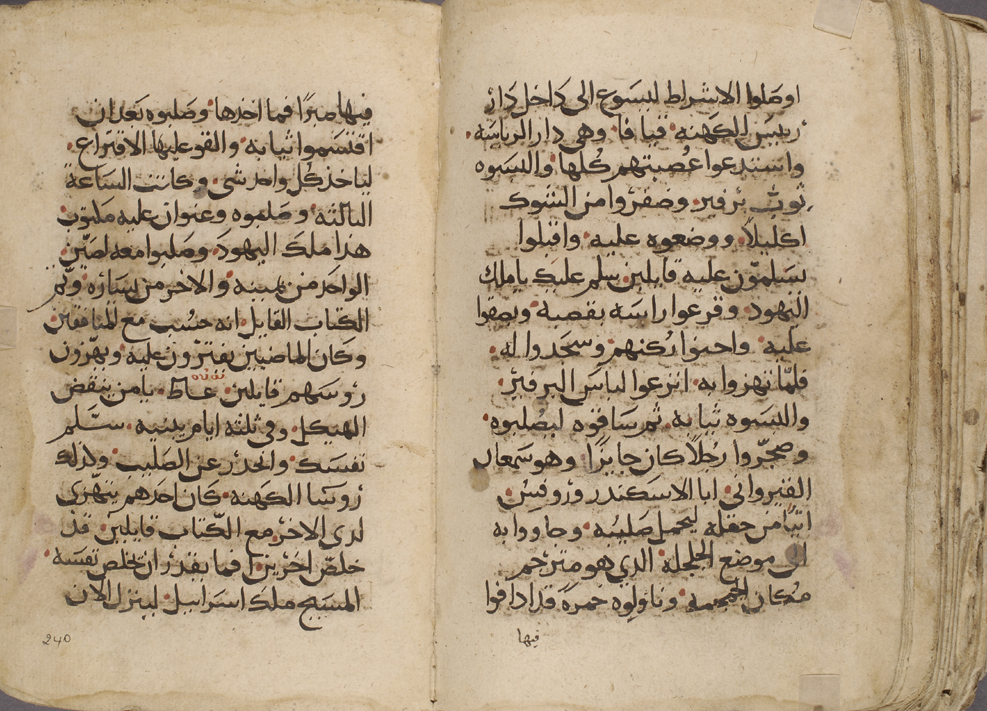 اوصلوا الاشراط ليسوع الى داخل دار
رييس الكهنه قيافا وهي دار الرياسه
واستدعوا عصبتهم كلها والبسوه
ثوب برفير وضفروا من الشوك
اكليلاً ووضعوه عليه واقبلوا
يسلمون عليه قايلين سلم عليك ياملك
اليهود وقرعوا راسه بقصبه وبصقوا
عليه واحنوا ركبهم وسجدوا له
فلما تهزوا به انزعوا لباس البرفير
والبسوه ثيابه ثم ساقوه ليصلبوه
وصجروا رجلاً كان جايزًا وهو سمعان
القيرواني ابا الاسكندر وروفس
اتيًا من حقله ليحمل صليبه وجاووا به
الى موضع الجلجلة الذي هو مترجم
مكان الجمجمه وناولوه خمرة قد ادافوا
فيها
فيها صبرًا فما اخدها وصلبوه بعد ان
اقتسموا ثيابه والقو عليها الاقتراع
لياخذ كل واحد شي وكانت الساعة
الثالثه وصلبوه وعنوان عليه مكتوب
هدا ملك اليهود وصلبوا معه لصين
الواحد من يمينه والاخر من يساره وتم
الكتاب القايل انه حسب مع المنافقين
وكان الماضيين يفترون عليه ويهزون
روسهم قايلين يامن ينقض
الهيكل وفي ثلثه ايام يبنيه سلم
نفسك وانحدر عن الصليب وكذلك
روسا الكهنه كان احدهم يتهزى
لدى الاخر مع الكتاب قايلين قد
خلص اخرين افما يقدر ان يخلص نفسه
المسيح ملك اسراييل لينزل الان
240